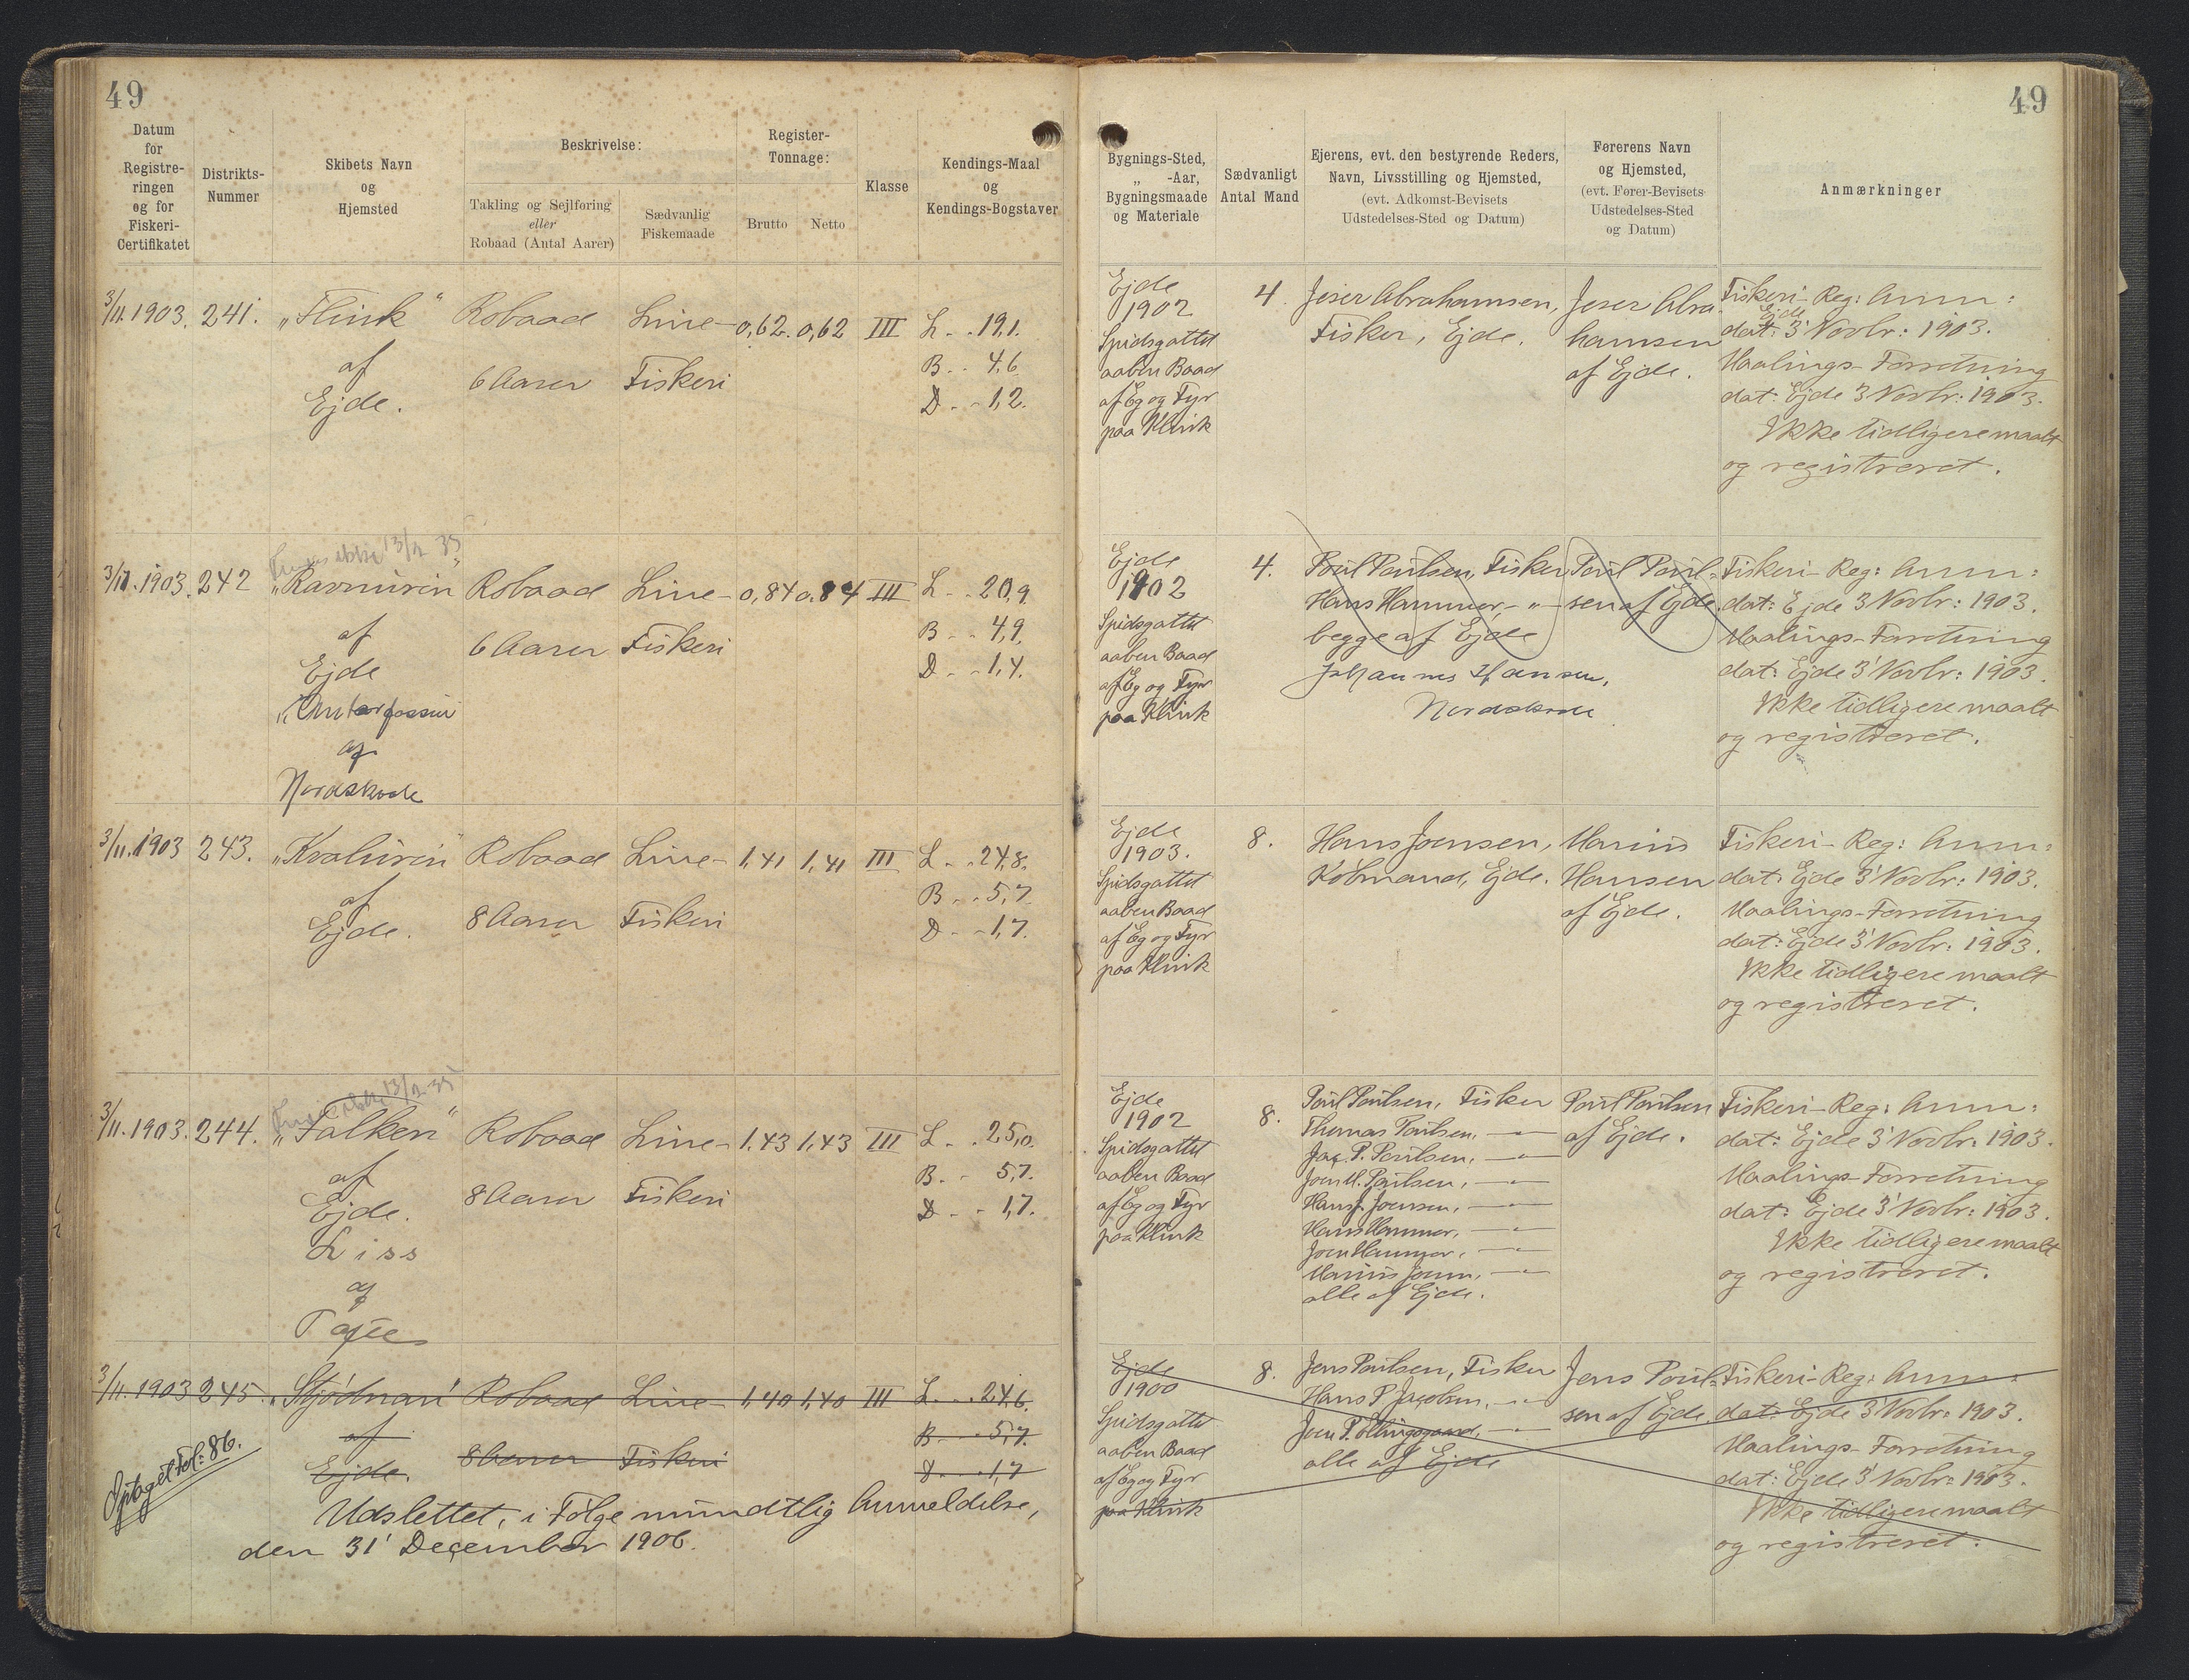 49
Datum
for
Registre-
ringen
og for
Fiskeri-
Certifikatet
Distrikts-
Nummer
Skibets Navn
og
Hjemsted
Beskrivelse:
Takling og Sejlføring
eller
Robaad (Antal Aarer)
Sædvanlig
Fiskemaade
Register-
Tonnage:
Brutto
Netto
Klasse
Kendings-Maal
og
Kendings-Bogstaver
3/11. 1903. 241. „Flink" Robaad Line- 0,62. 0,62 III L. . 19,1.
af 6 Aarer Fiskeri B. . 4,6
Ejde. D. . 1,2.
13/2 35
3/11. 1903. 242 „Ravnurin" Robaad Line- 0,84 0.84 III L. . 20,9.
af 6 Aarer Fiskeri B. . 4,9.
Ejde D. . 1,4.
af
Nordskaale
3/11. 1903 243. „Kvalurin" Robaad Line- 1,41 1,41 III L. . 24,8.
af 8 Aarer Fiskeri B. . 5,7.
Ejde. D. . 1,7.
13/2 35
3/11. 1903. 244. „Falken" Robaad Line- 1.43 1,43 III L. . 25,0.
af 8 Aarer Fiskeri B. . 5,7.
Ejde. D. . 1,7.
Liss
af
3/11. 1903 245. Robaad Line- 1,40 1,40 III L. . 24,6.
af 8 Aarer Fiskeri B. . 5,7.
Ejde. D. . 1,7
Optaget Fol: 86.
Udslettet, i Følge mundtlig Anmeldelse,
den 31' December 1906.
49
Bygnings-Sted,
„ -Aar,
Bygningsmaade
og Materiale
Sædvanligt
Antal Mand
Ejerens, evt. den bestyrende Reders,
Navn, Livsstilling og Hjemsted,
(evt. Adkomst-Bevisets
Udstedelses-Sted og Datum)
Førerens Navn
og Hjemsted,
(evt. Fører-Bevisets
Udstedelses-Sted
og Datum)
Anmærkninger
Ejde
1902
Spidsgattet
aaben Baad
af Eg og Fyr
paa Klink
4.
Jeser Abrahamsen,
Fisker, Ejde.
Jeser Abra-
hamsen
af Ejde.
Fiskeri-Reg: Anm:
dat: Ejde 3' Novbr: 1903.
Maalings-Forretning
dat: Ejde 3 Novbr: 1903.
Ikke tidligere maalt
og registreret.
Ejde
1902
Spidsgattet
aaben Baad
af Eg og Fyr
paa Klink
4.
Poul Poulsen, Fisker
Hans Hammer, - " -
begge af Ejde
Johannes Hansen,
Nordskaale
Poul Poul-
sen af Ejde.
Fiskeri-Reg: Anm:
dat: Ejde 3 Novbr: 1903.
Maalings-Forretning
dat: Ejde 3' Novbr: 1903.
Ikke tidligere maalt
og registreret.
Ejde
1903.
Spidsgattet
aaben Baad
af Eg og Fyr
paa Klink
8.
Hans Joensen,
Købmand, Ejde.
Marius
Hansen
af Ejde.
Fiskeri-Reg: Anm:
dat: Ejde 3' Novbr: 1903.
Maalings-Forretning
dat: Ejde 3' Novbr: 1903.
Ikke tidligere maalt
og registreret.
Ejde
1902
Spidsgattet
aaben Baad
af Eg og Fyr
paa Klink
8.
Poul Poulsen, Fisker
Thomas Poulsen, - " -
Jac. P. Poulsen, - " -
Joen M. Poulsen, - " -
Hans J. Joensen, - " -
Hans Hammer, - " -
Joen Hammer, - " -
Marius Joen, - " -
alle af Ejde.
Poul Poulsen
af Ejde.
Fiskeri-Reg: Anm:
dat: Ejde 3' Novbr: 1903.
Maalings-Forretning
dat: Ejde 3' Novbr: 1903.
Ikke tidligere maalt
og registreret.
Ejde
1900
Spidsgattet
aaben Baad
af Eg og Fyr
paa Klink
8.
Jens Poulsen, Fisker
Hans P. Jacobsen, - " -
Joen P. Ellingsgaard, - " -
alle af Ejde
Jens Poul-
sen af Ejde.
Fiskeri-Reg: Anm:
dat: Ejde 3' Novbr: 1903.
Maalings-Forretning
dat: Ejde 3' Novbr: 1903.
Ikke tidligere maalt
og registreret.